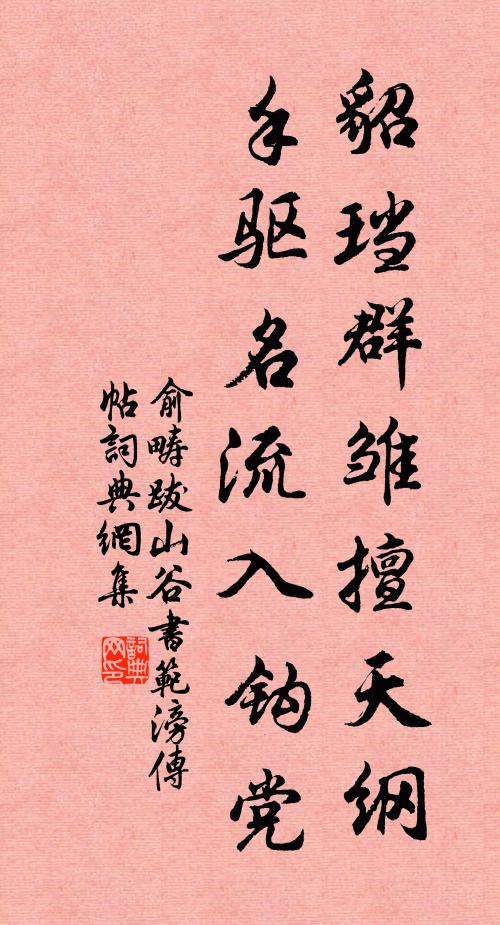 貂珰群雏擅天纲
手驱名流入钩党
俞畴跋山谷書範滂傳
帖詞典網集
詞典网印